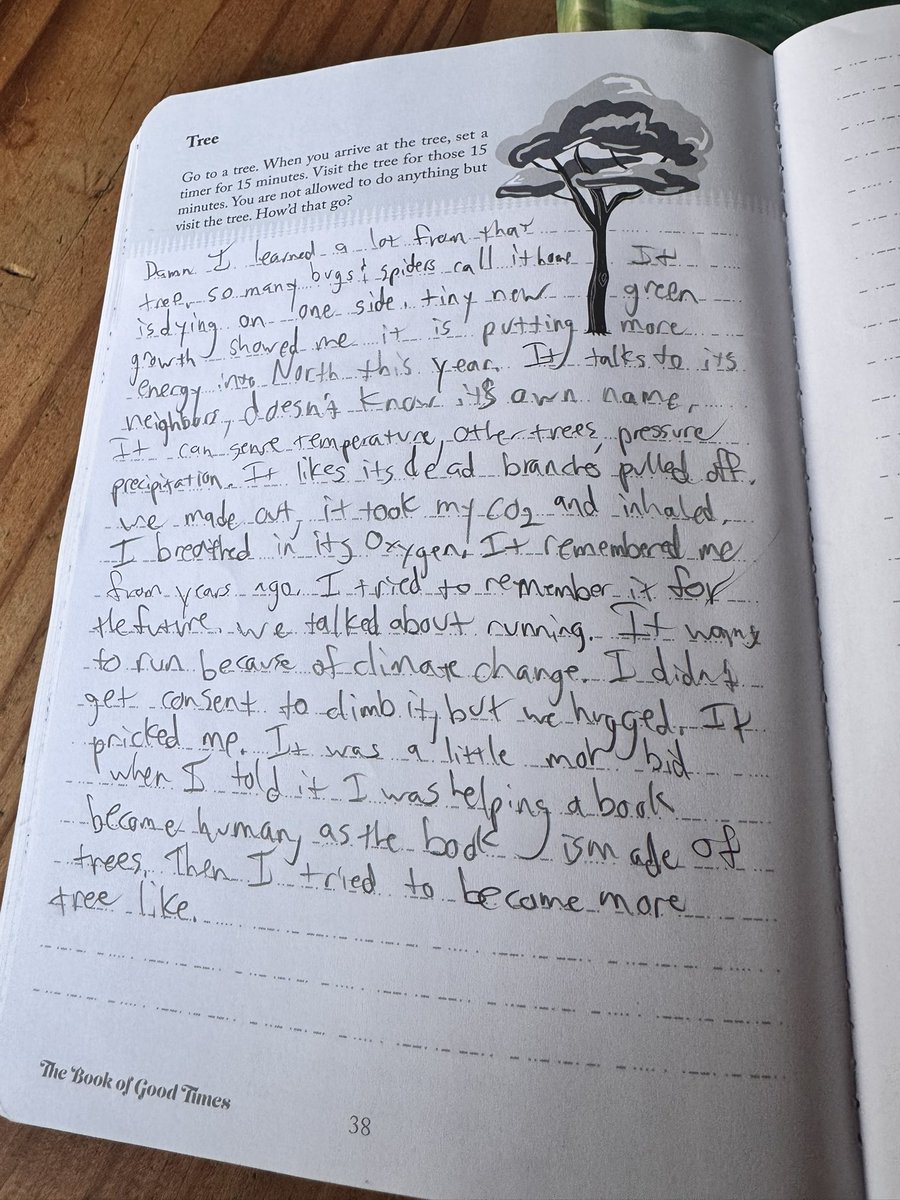 Tree
Go to a tree. When you arrive at the tree, set a
timer for 15 minutes. Visit the tree for those 15
minutes. You are not allowed to do anything but
visit the tree. How'd that go?
Damn I learned a lot from that
tree, so many bugs & spiders call it home It
is dying on one side, tiny new green
growth showed me it is putting more
energy into North this year. It talks to its
neighbors, doesn't know it's own name,
It can sense temperature, other trees, pressure
precipitation. It likes its dead branches pulled off.
we made out, it took my CO2 and inhaled,
I breathed in its Oxygen. It remembered me
from years ago. I tried to remember it for
the future. we talked about running. It wants
to run because of climate change. I didn't
get consent to climb it, but we hugged. It
pricked me. It was a little morbid
when I told it I was helping a book
become human, as the book is made of
trees. Then I tried to become more
tree like.
The Book of Good Times
38